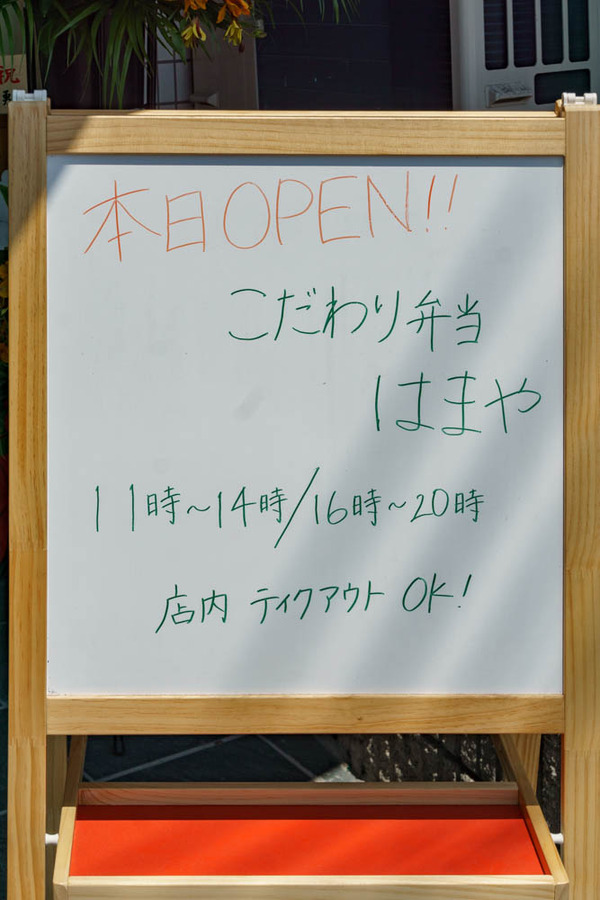 祝
本日OPEN!!
こだわり弁当
はまや
11時~14時/16時~20時
店内 テイクアウト OK!